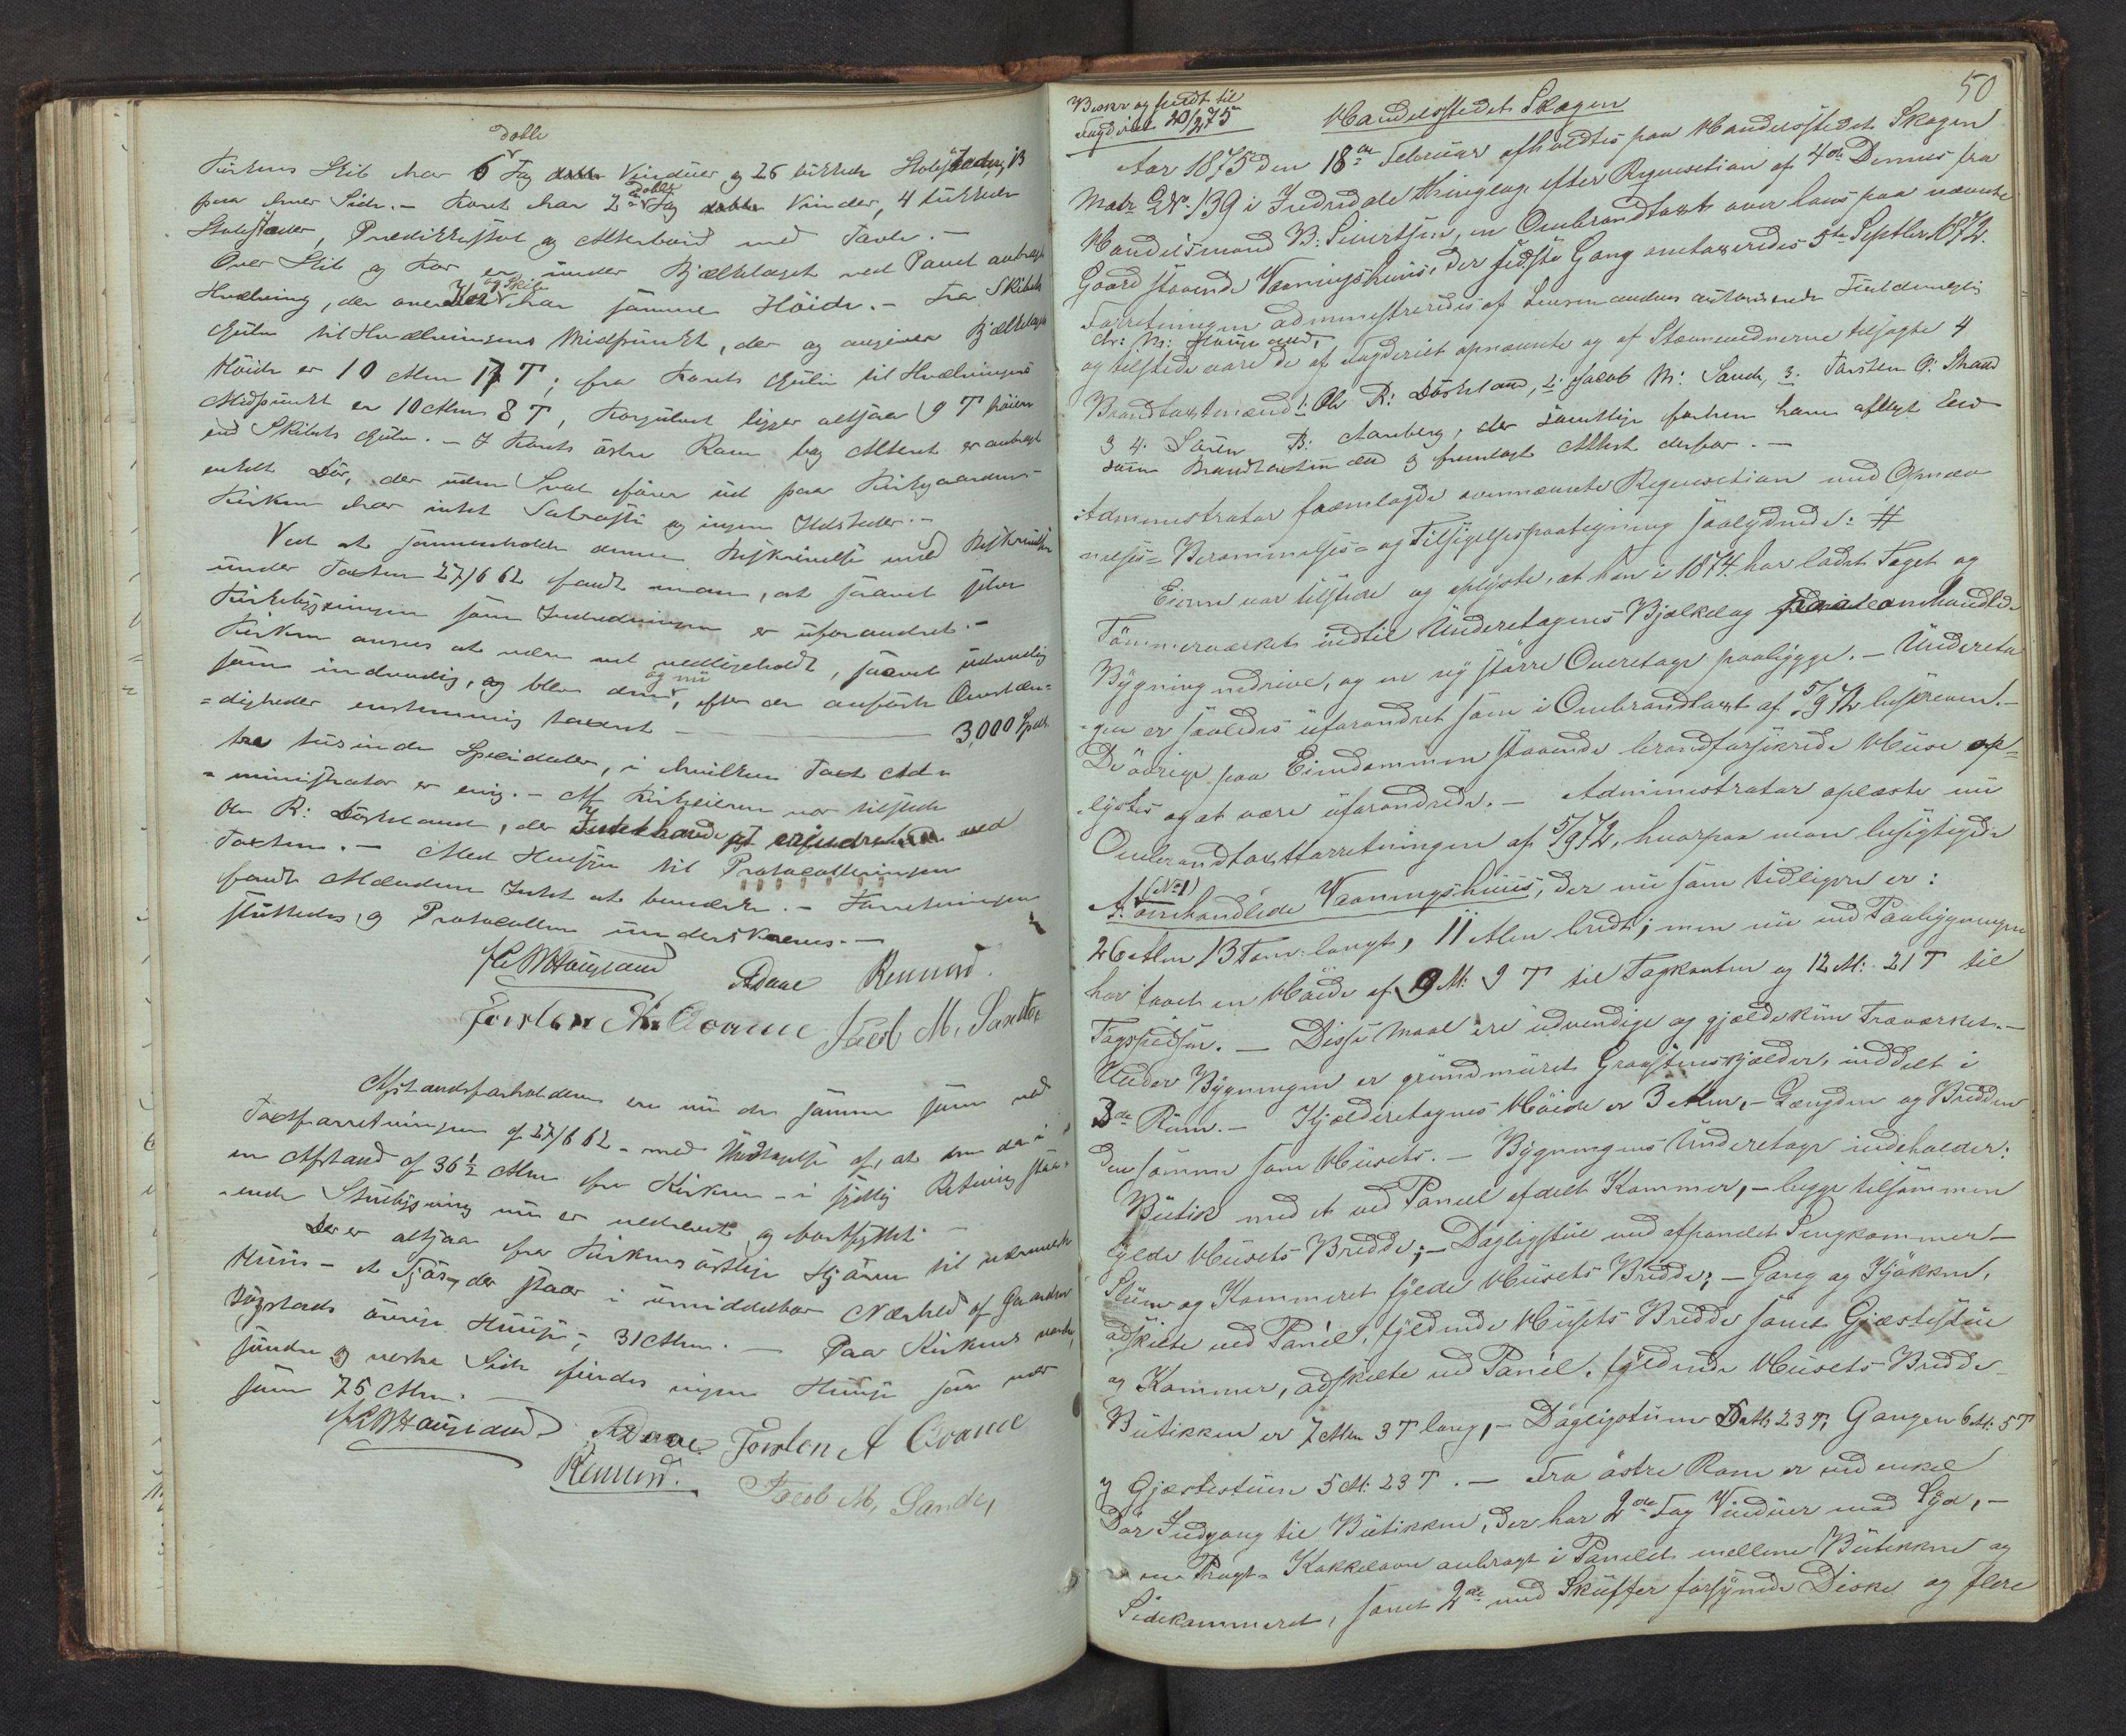 doble
Kirkens Skib har 6 Fag Vinduer og 26 lukkede Stolestader, 13
paa hver Side. – Koret har 2de Fag doble Vinder, 4 lukkede
Stolestader, Prædikkestol og Alterbord med Tavle. –
Over Skib og Kor er under Bjælkelaget ved Panel anbragt
Hvælving, der over Kor og Skib har samme Höide. – Fra Skibets
Gulv til Hvælvingens Midpunkt, der og angiver Bjælkelagets
Höide er 10 Alen 17 T; fra Korets Gulv til Hvælvingens
Midpunkt er 10 Alen 8 T, Korgulvet ligger altsaa 9 T höiere
end Skibets Gulv. – I Korets östre Rum bag Alteret er anbragt
enkelt Dör, der uden Sval förer ud paa Kirkegaarden –
Kirken har intet Sakristi og ingen Ildsteder. –
Ved at sammenholde denne Beskrivelse med Beskrivelsen
under Taxten 27/6 62 fandt man, at saavel selve
Kirkebygningen som Indredningen er uforandret. –
Kirken ansees at være vel vedligeholdt, saavel udvendig
som indvendig, og blev den og nu, efter de anförte Omstæn-
-digheder enstemmig taxeret — 3,000 Spdr.
tre tusinde Speciedaler, i hvilken Taxt Ad-
-ministrator er enig. – Af Kirkeeierne var tilstede
Ole R: Döskeland, der Intet havde at erindre ved
Taxten. – Med Hensyn til Protocolleringen
fandt Mændene Intet at bemærke. – Forretningen
sluttedes, og Protocollen underskreves. –
Chr M Hougland ADaae Rennord.
Torsten A. Qvame Jacob M. Sande
Afstandsforholdene ere nu de samme som ved
Taxtforretningen af 27/6 62 – med Undtagelse af, at den da i
en Afstand af 36½ Alen fra Kirken – i sydlig Retning staa-
-ende Stuebygning nu er nedrevet og bortflyttet –
Der er altsaa fra Kirkens östlige Hjörne til nærmeste
Huus – et Fjös, der staar i umiddelbar Nærhed af Gaarden
Bygstads övrige Huuse, 31 Alen. – Paa Kirkens nordre,
søndre og vestre Side findes ingen Huuse saa nær
som 75 Alen. –
Chr M Hougland ADaae Torsten A Qvame
Rennord. Jacob M, Sande,
50
Beskr og sendt til
Fogderiet 20/2 75
Handelsstedet Skagen
Aar 1875 den 18de Februar afholdtes paa Handelsstedet Skagen
Matr GNo. 139 i Indredale Thinglag efter Reqvisition af 4de Dennes fra
Handelsmand B: Sivertsen, en Ombrandtaxt over hans paa nævnte
Gaard staaende Vaaningshuus, der sidste Gang omtaxeredes 5te Septbr 1872.
Forretningen administreredes af Lensmandens autoriserede Fuldmægtig
Chr: M: Hougland,
og tilstede vare de af Fogderiet opnævnte og af Stævnevidnerne tilsagte 4
Brandtaxtmænd 1: Ole R: Döskeland, 2: Jacob M: Sande, 3. Torsten O: Strand
og 4. Sören B: Aarberg, der samtlige forhen have aflagt Eed
som Brandtaxtmænd og fremlagt Attest derfor. –
Administrator fremlagde ovennævnte Reqvisition med Opnæv
nelses- Berammelses- og Tilsigelsespaategning saalydende: #
Eieren var tilstede og oplyste, at han i 1874 har ladet Taget og
Tömmerværket indtil Underetagens Bjælkelag paa omhandlede
Bygning nedrive, og en ny större Overetage paabygge. – Undereta
-gen er saaledes uforandret som i Ombrandtaxt af 5/9 72 beskreven. –
De övrige paa Eiendommen staaende brandforsikrede Huse op-
-lystes og at være uforandrede. – Administrator oplæste nu
Ombrandtaxtforretningen af 5/9 72, hvorpaa man besigtigede
(No 1)
A: omhandlede Vaaningshuus, der nu som tidligere er:
26 Alen 13 Tom: langt, 11 Alen bredt; men nu ved Paabygningen
har faaet en Höide af 9 Al: 9 T til Tagkanten og 12 Al: 21 T til
Tagspidsen. – Disse Maal ere udvendige og gjælde kun Træværket. –
Under Bygningen er grundmuret Graastenskjelder, inddelt i
3de Rum. – Kjelderetagens Höide er 3 Alen, – Længden og Bredden
den samme som Husets. – Bygningens Underetage indeholder:
Butik med et ved Paneel afdelt Kammer, – begge tilsammen
fylde Husets Bredde; – Dagligstue med afpanelet Sengkammer –
Stuen og Kammeret fylde Husets Bredde; – Gang og Kjökken,
adskilte ved Panel, fyldende Husets Bredde samt Gjæstestue
og Kammer, adskilte ved Panel, fyldende Husets Bredde –
Butikken er 7 Alen 3 T lang, – Dagligstuen 5 Al: 23 T, Gangen 6 Al: 5 T
og Gjæstestuen 5 Al: 23 T. – Fra östre Rum er ved enkel
Dör Indgang til Butikken, der har 2de Fag Vinduer mod Syd, –
en Pragt- Kakkelovn anbragt i Panelet mellem Butikken og
Sidekammeret, samt 2de med Skuffer forsynede Diske og flere